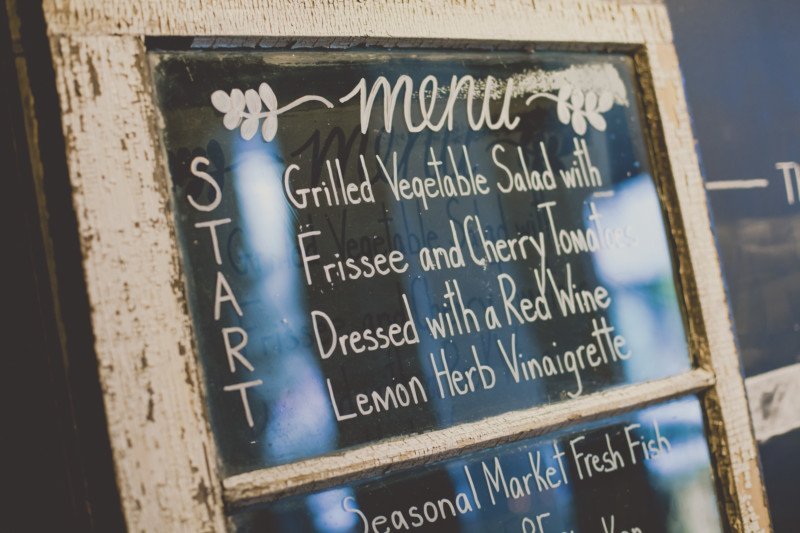 menu
START
Grilled Vegetable Salad with
Frissee and Cherry Tomatoes
Dressed with a Red Wine
Lemon Herb Vinaigrette
Seasonal Market Fresh Fish